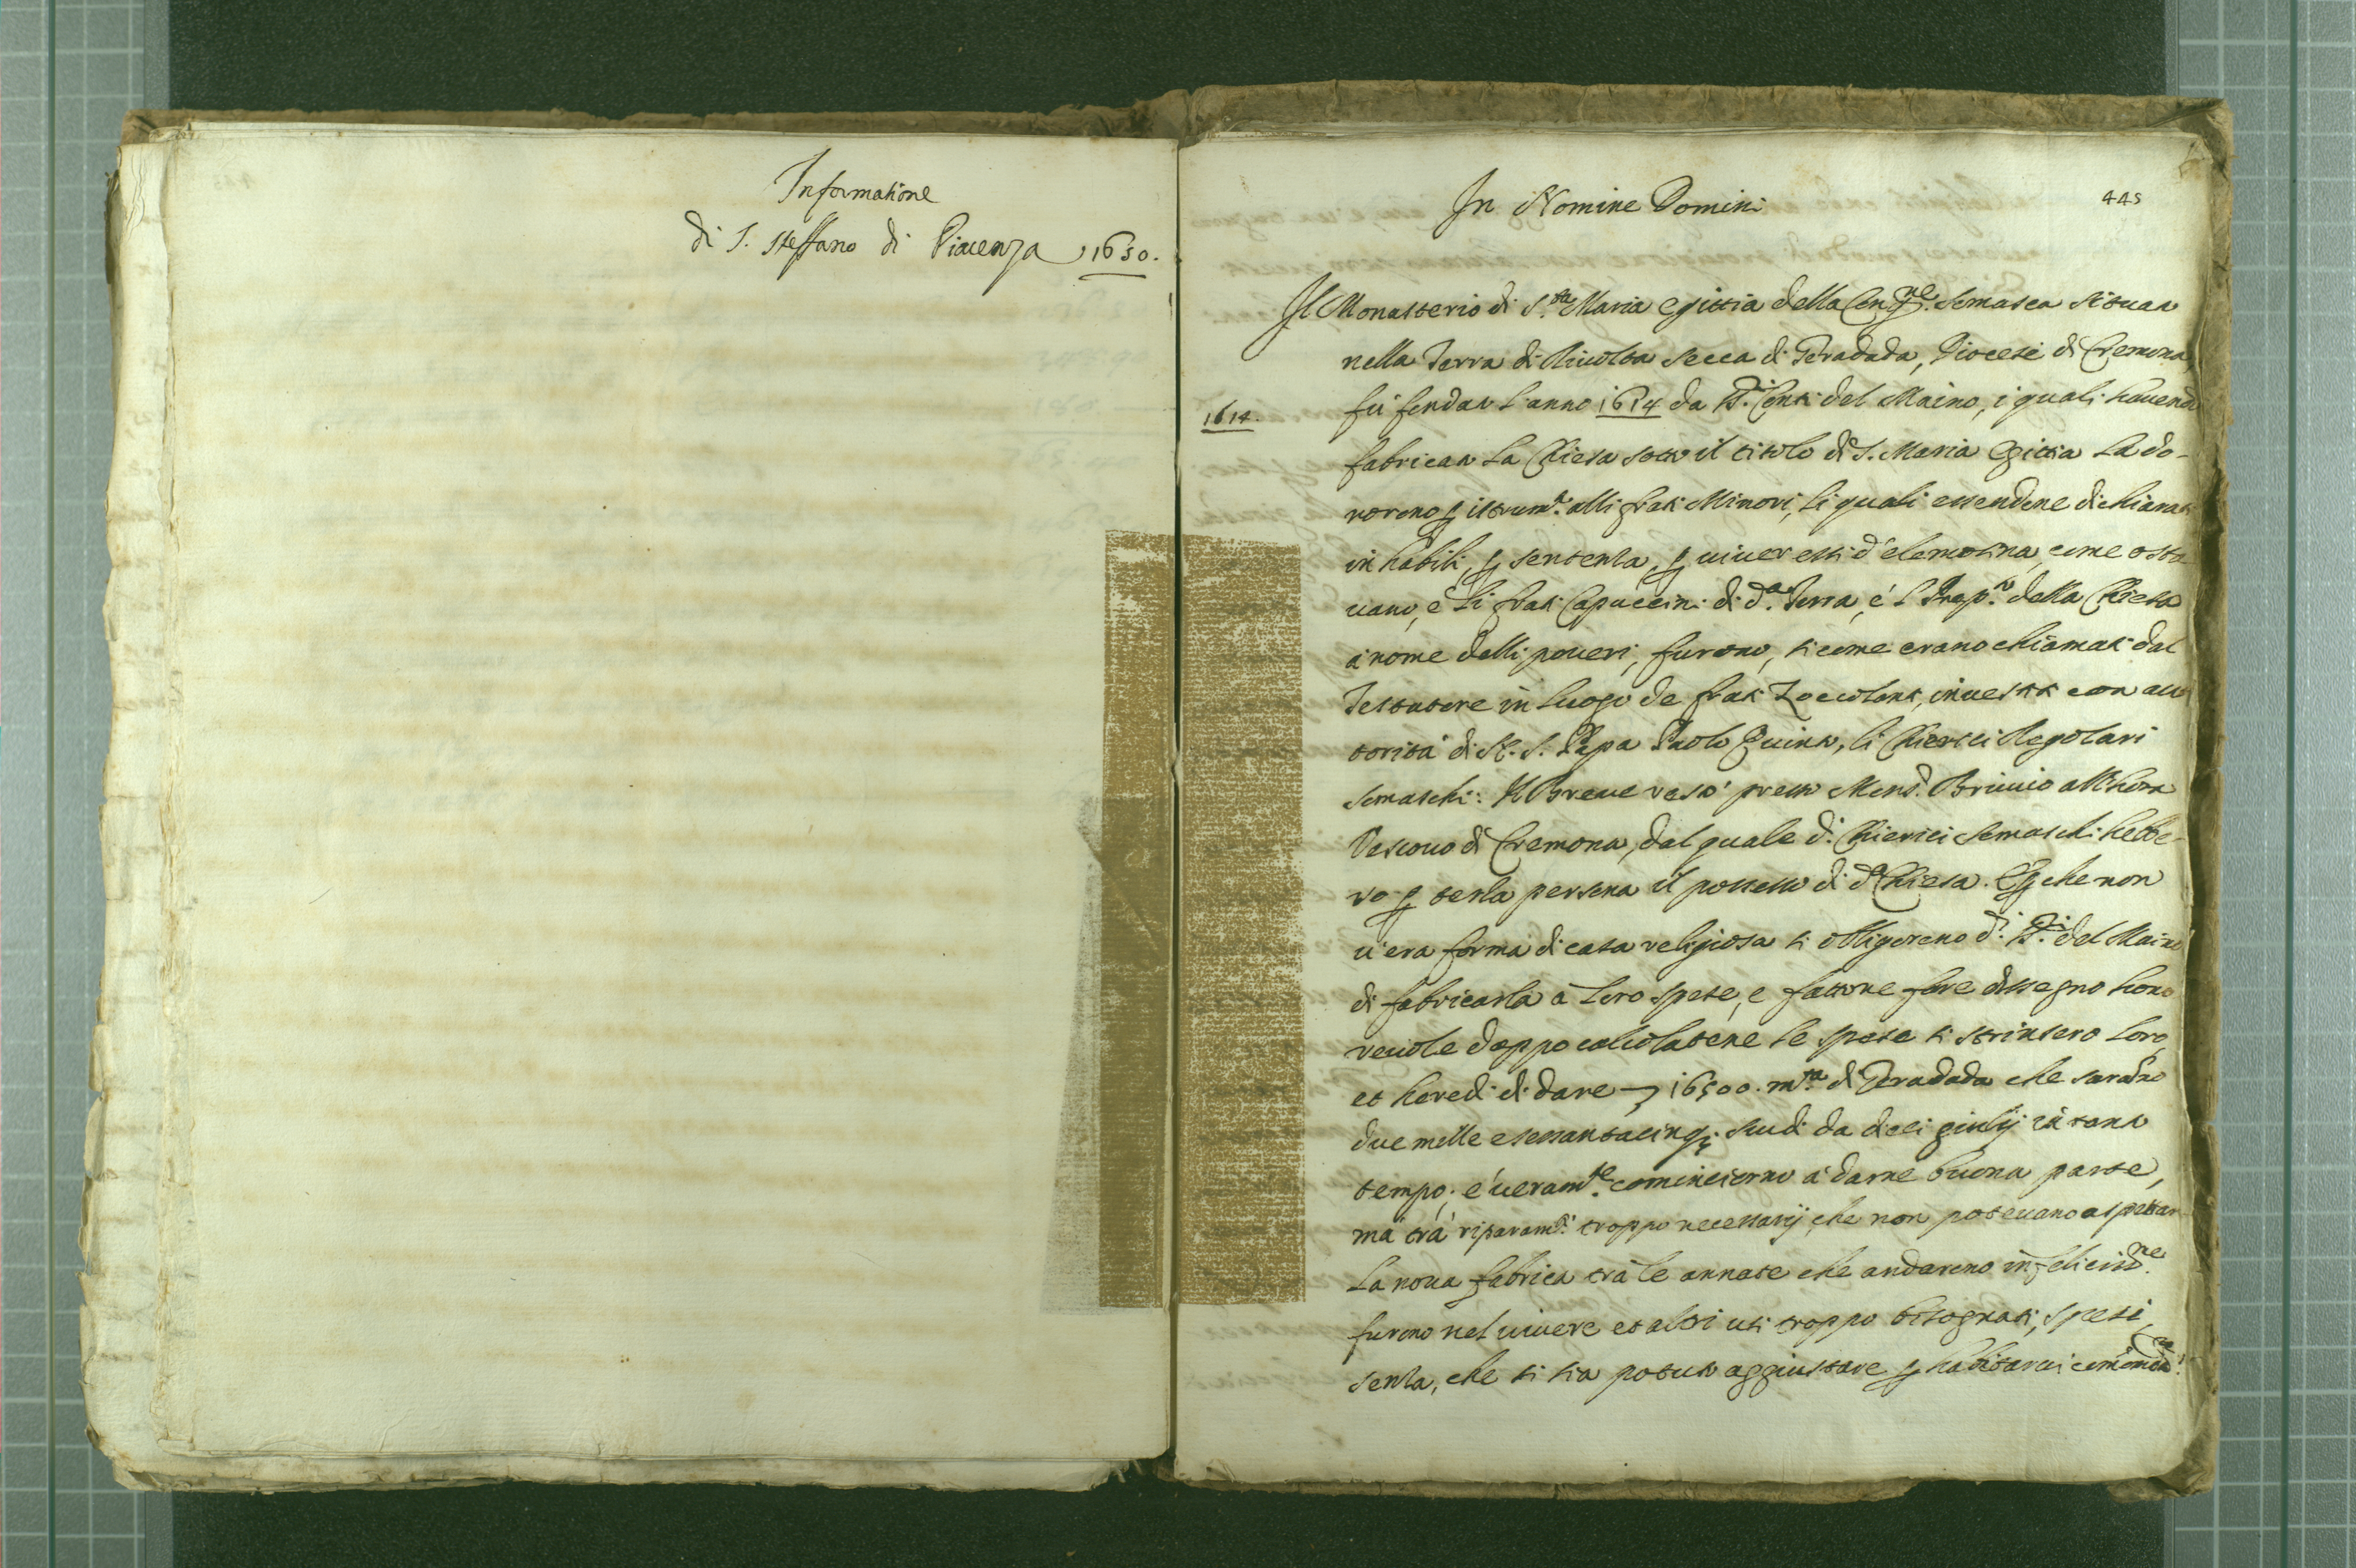 Informatione
di S. Steffano di Piacenza 1650.
445
In Nomine Domini
Il Monasterio di S.ta Maria Egittia della Cong.ne Somasca situato
nella Terra di Rivolta secca di Geradada, Diocesi di Cremona,
1614.
fù fondato l'anno 1614 da SS.ri Conti del Maino, i quali havendo
fabricato la Chiesa sotto il titolo di S. Maria Egittia la do-
norono p istrum.to alli frati Minori, li quali essendone dichiarati
inhabili, p sentenza, p viver essi d'elemosina, come osta
vano, e li frati Capuccini di d.a Terra, e l della Chiesa
à nome delli poveri, furono, si come erano chiamati dal
Testatore in luogo de frati Zoccolanti, investiti con au
torità di N. S. Papa Paolo Quinto, li Chierici Regolari
Somaschi: Il Breve restò presso Mons.r Brivio all'hora
Vescovo di Cremona, dal quale d.i Chierici Somaschi hebbe-
ro p terza persona il possesso di d.a Chiesa. E p che non
v'era forma di casa religiosa si obligorono d.i SS.ri del Maino
di fabricarla à loro spese, e fattone fare dissegno hono
revole doppo calcolatene le spese si strinsero loro,
et heredi di dare 16500. m.ta di Geradada che saranno
due mille e sessantacinq; scudi da dieci giulij in tanto
tempo; e veram.te cominciorno à darne buona parte,
mà trà riparam.ti troppo necessarij, che non potevano aspettar
la nova fabrica trà le annate che andarono infeliciss.me
furono nel vivere et altri usi troppo bisognati, spesi,
senza, che si sia potuto aggiustare p habitarvi